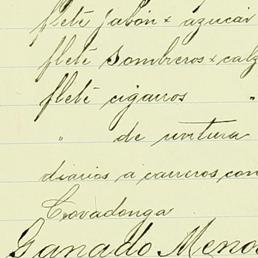 flete jabón + azucár
flete sombreros + calz
flete cigarros "
" de untura
diarios a carreros con
Covadonga
Ganado Menor